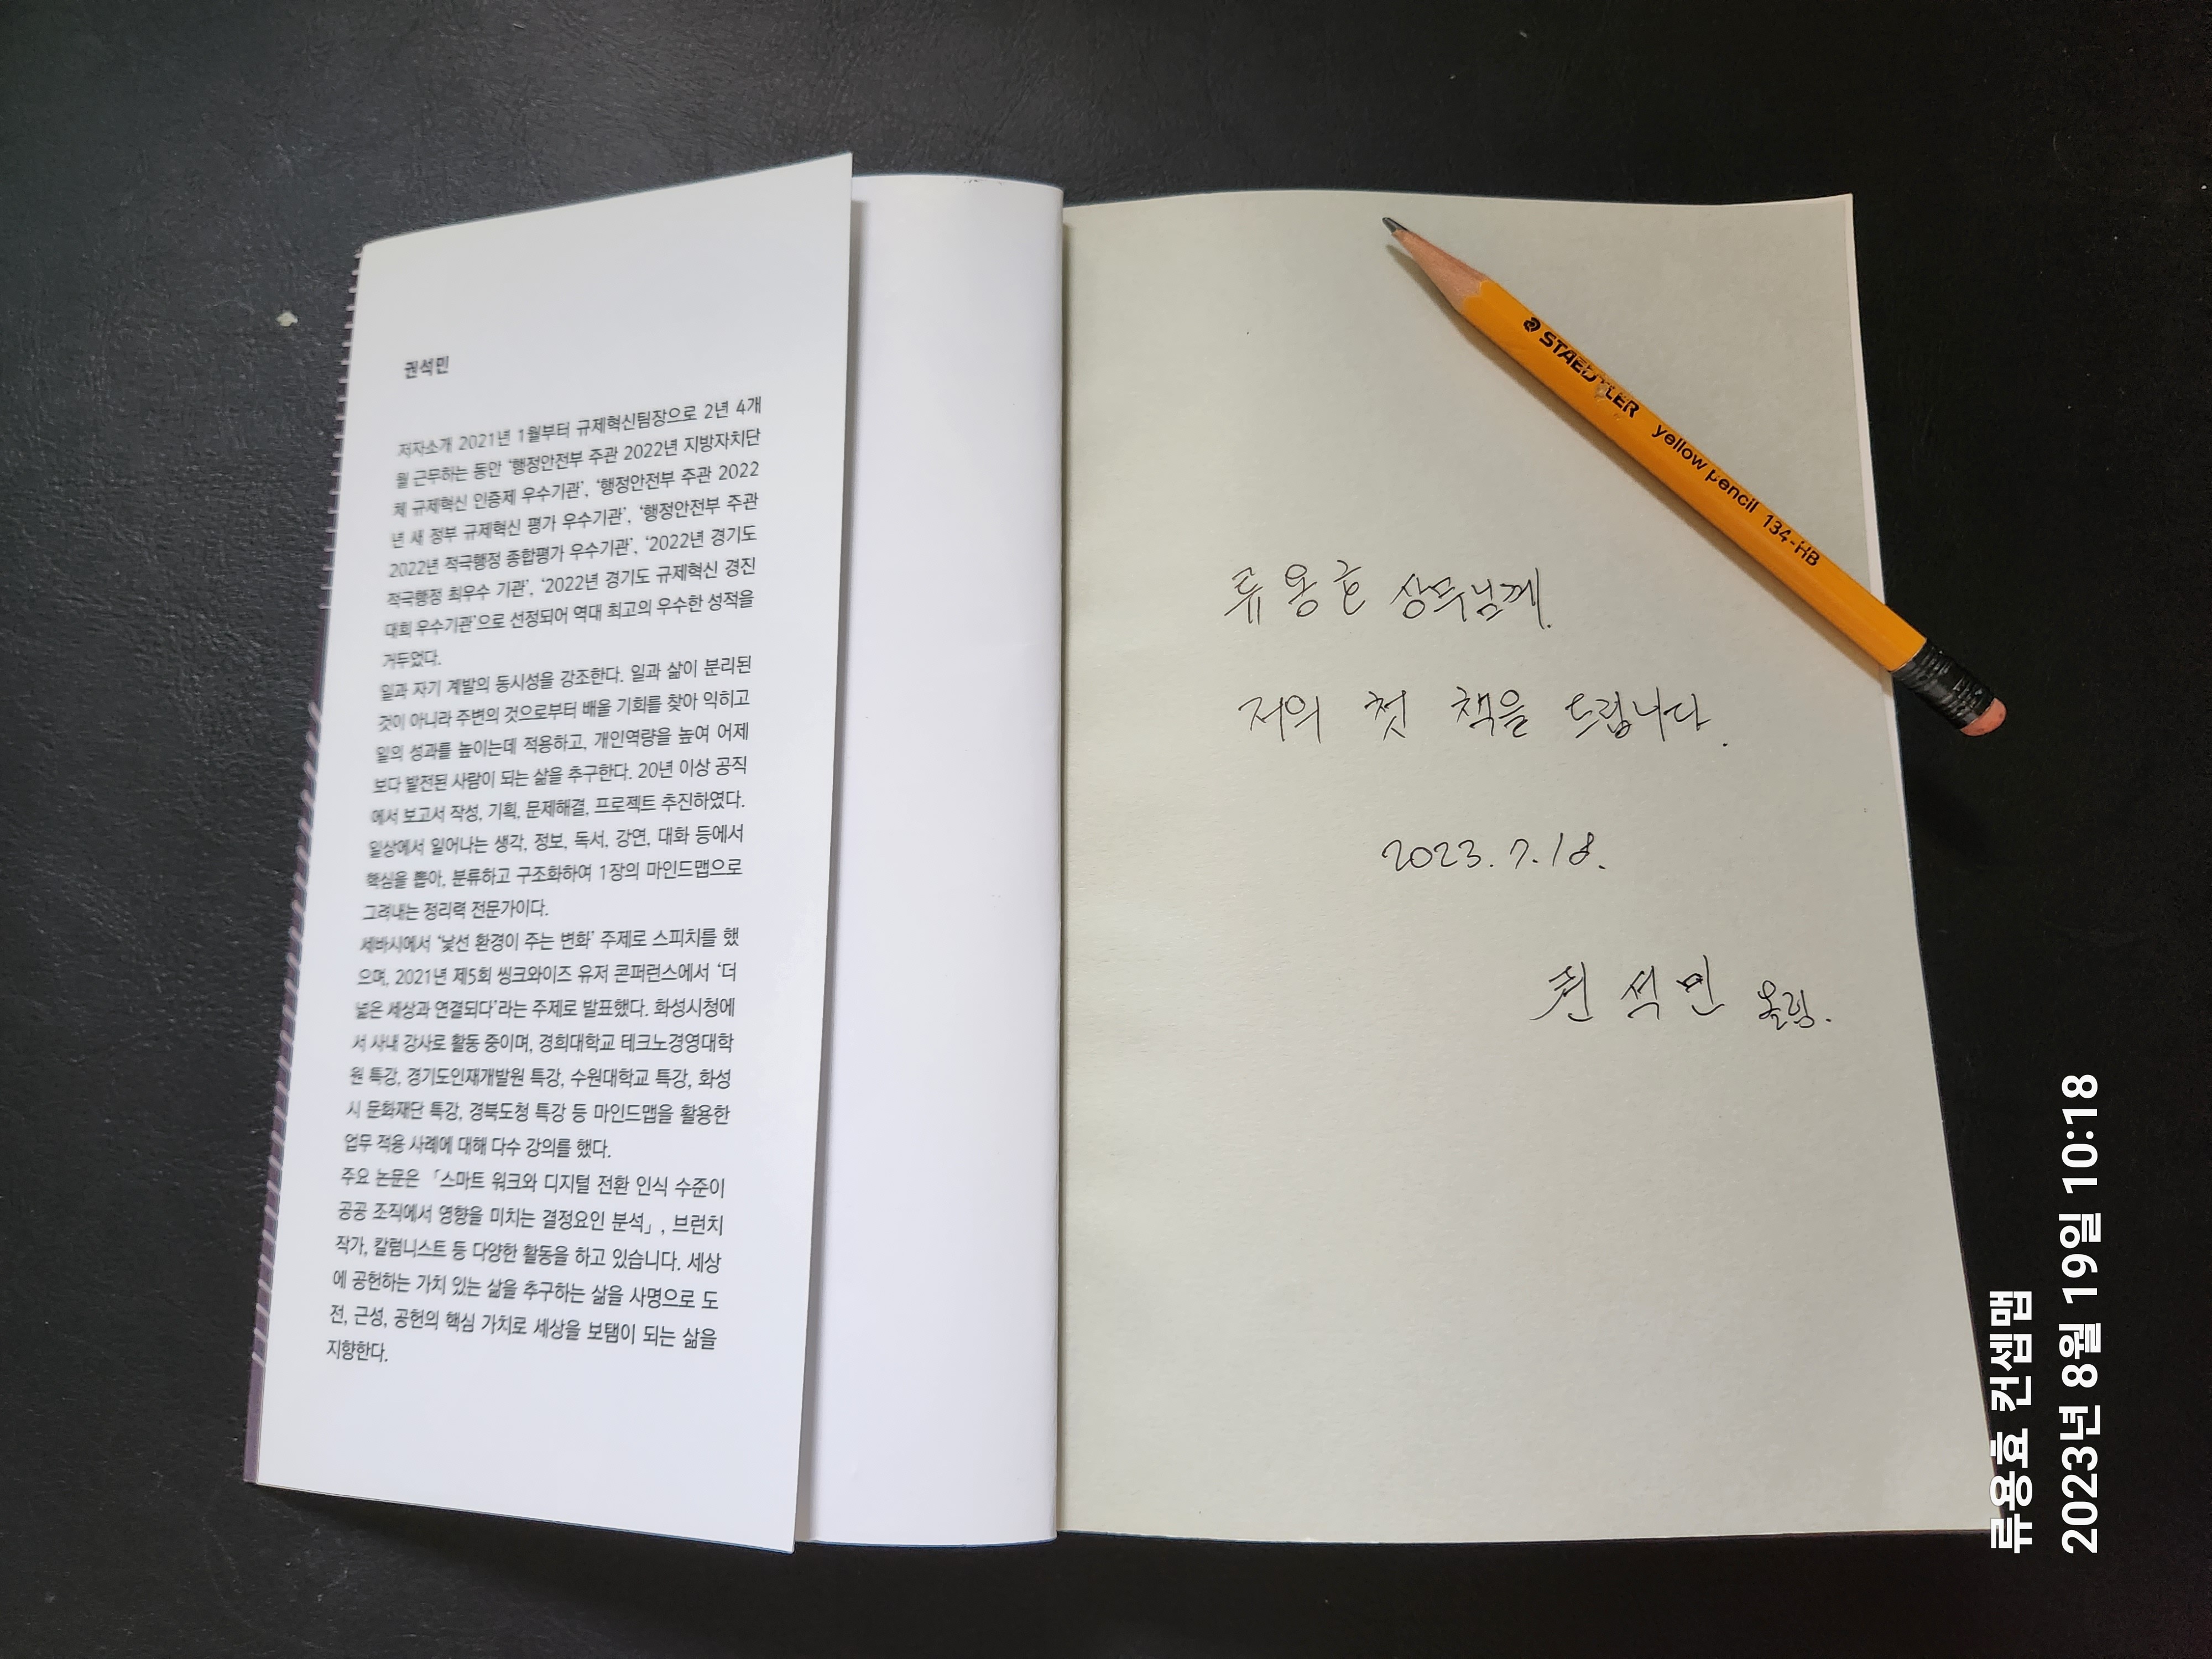 권석민
저자소개 2021년 1월부터 규제혁신팀장으로 2년 4개
월 근무하는 동안 '행정안전부 주관 2022년 지방자치단
체 규제혁신 인증제 우수기관', '행정안전부 주관 2022
년 새 정부 규제혁신 평가 우수기관', '행정안전부 주관
2022년 적극행정 종합평가 우수기관', '2022년 경기도
적극행정 최우수 기관', '2022년 경기도 규제혁신 경진
대회 우수기관'으로 선정되어 역대 최고의 우수한 성적을
거두었다.
일과 자기 계발의 동시성을 강조한다. 일과 삶이 분리된
것이 아니라 주변의 것으로부터 배울 기회를 찾아 익히고
일의 성과를 높이는데 적용하고, 개인역량을 높여 어제
보다 발전된 사람이 되는 삶을 추구한다. 20년 이상 공직
에서 보고서 작성, 기획, 문제해결, 프로젝트 추진하였다.
일상에서 일어나는 생각, 정보, 독서, 강연, 대화 등에서
핵심을 뽑아, 분류하고 구조화하여 1장의 마인드맵으로
그려내는 정리력 전문가이다.
세바시에서 '낯선 환경이 주는 변화' 주제로 스피치를 했
으며, 2021년 제5회 씽크와이즈 유저 콘퍼런스에서 '더
넓은 세상과 연결되다'라는 주제로 발표했다. 화성시청에
서 사내 강사로 활동 중이며, 경희대학교 테크노경영대학
원 특강, 경기도인재개발원 특강, 수원대학교 특강, 화성
시 문화재단 특강, 경북도청 특강 등 마인드맵을 활용한
업무 적용 사례에 대해 다수 강의를 했다.
주요 논문은 「스마트 워크와 디지털 전환 인식 수준이
공공 조직에서 영향을 미치는 결정요인 분석」, 브런치
작가, 칼럼니스트 등 다양한 활동을 하고 있습니다. 세상
에 공헌하는 가치 있는 삶을 추구하는 삶을 사명으로 도
전, 근성, 공헌의 핵심 가치로 세상을 보탬이 되는 삶을
지향한다.
STAEDTLER yellow pencil 134-HB
류용효 상무님께.
저의 첫 책을 드립니다.
2023. 7. 18.
권석민 올림.
류용효 컨셉맵
2023년 8월 19일 10:18